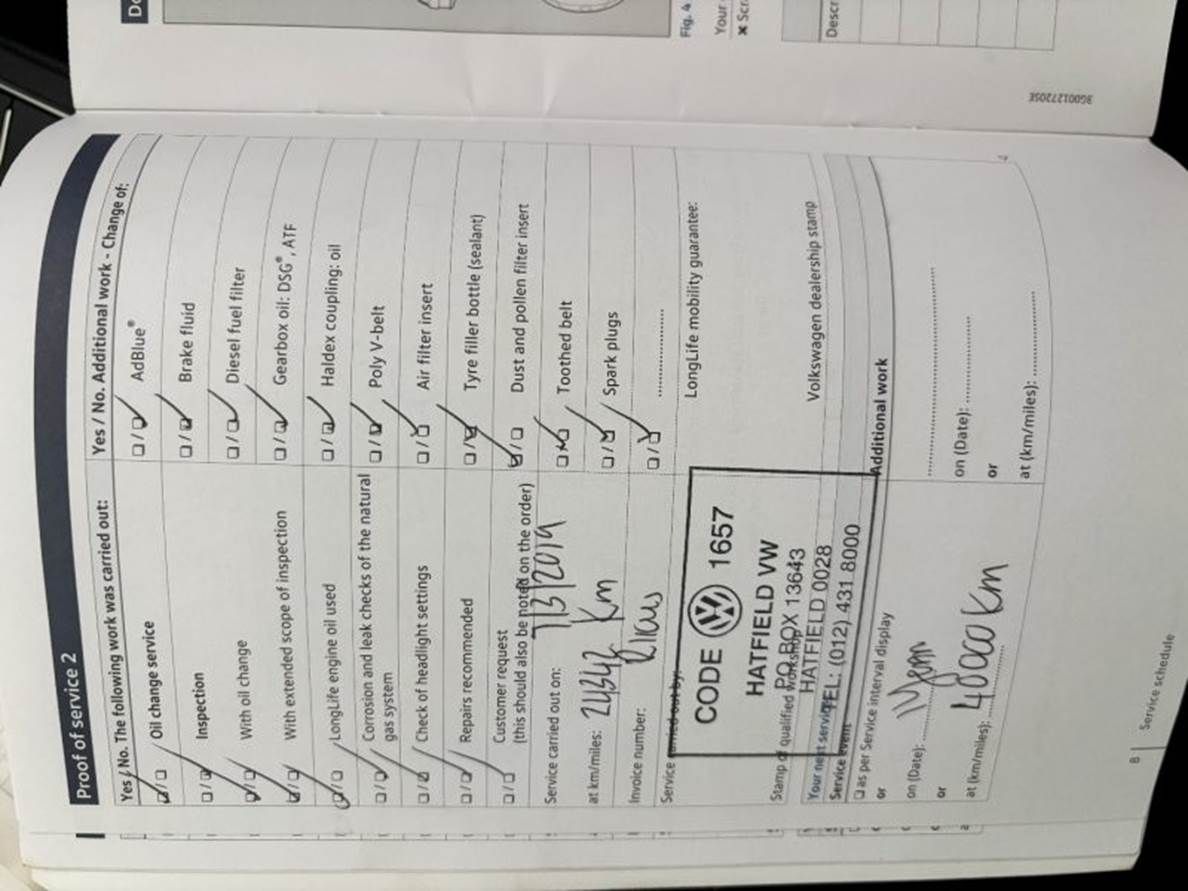 Proof of service 2
Yes / No. The following work was carried out:
Oil change service
Inspection
With oil change
With extended scope of inspection
LongLife engine oil used
Corrosion and leak checks of the natural
gas system
Check of headlight settings
Repairs recommended
Customer request
(this should also be noted on the order)
Service carried out on: 7/3/2019
at km/miles: 24342 Km
Invoice number:
Service carried out by:
CODE 1657
HATFIELD VW
P.O BOX 13643
HATFIELD 0028
TEL: (012) 431 8000
Stamp of qualified workshop
Your next service
Service event
as per Service interval display
or
on (Date): 1Year
or
at (km/miles): 40000 Km
Yes / No. Additional work - Change of:
AdBlue®
Brake fluid
Diesel fuel filter
Gearbox oil: DSG®, ATF
Haldex coupling: oil
Poly V-belt
Air filter insert
Tyre filler bottle (sealant)
Dust and pollen filter insert
Toothed belt
Spark plugs
LongLife mobility guarantee:
Volkswagen dealership stamp
Additional work
on (Date):
or
at (km/miles):
8 | Service schedule
Fig. 4
Your
Descr
3G0012720SE